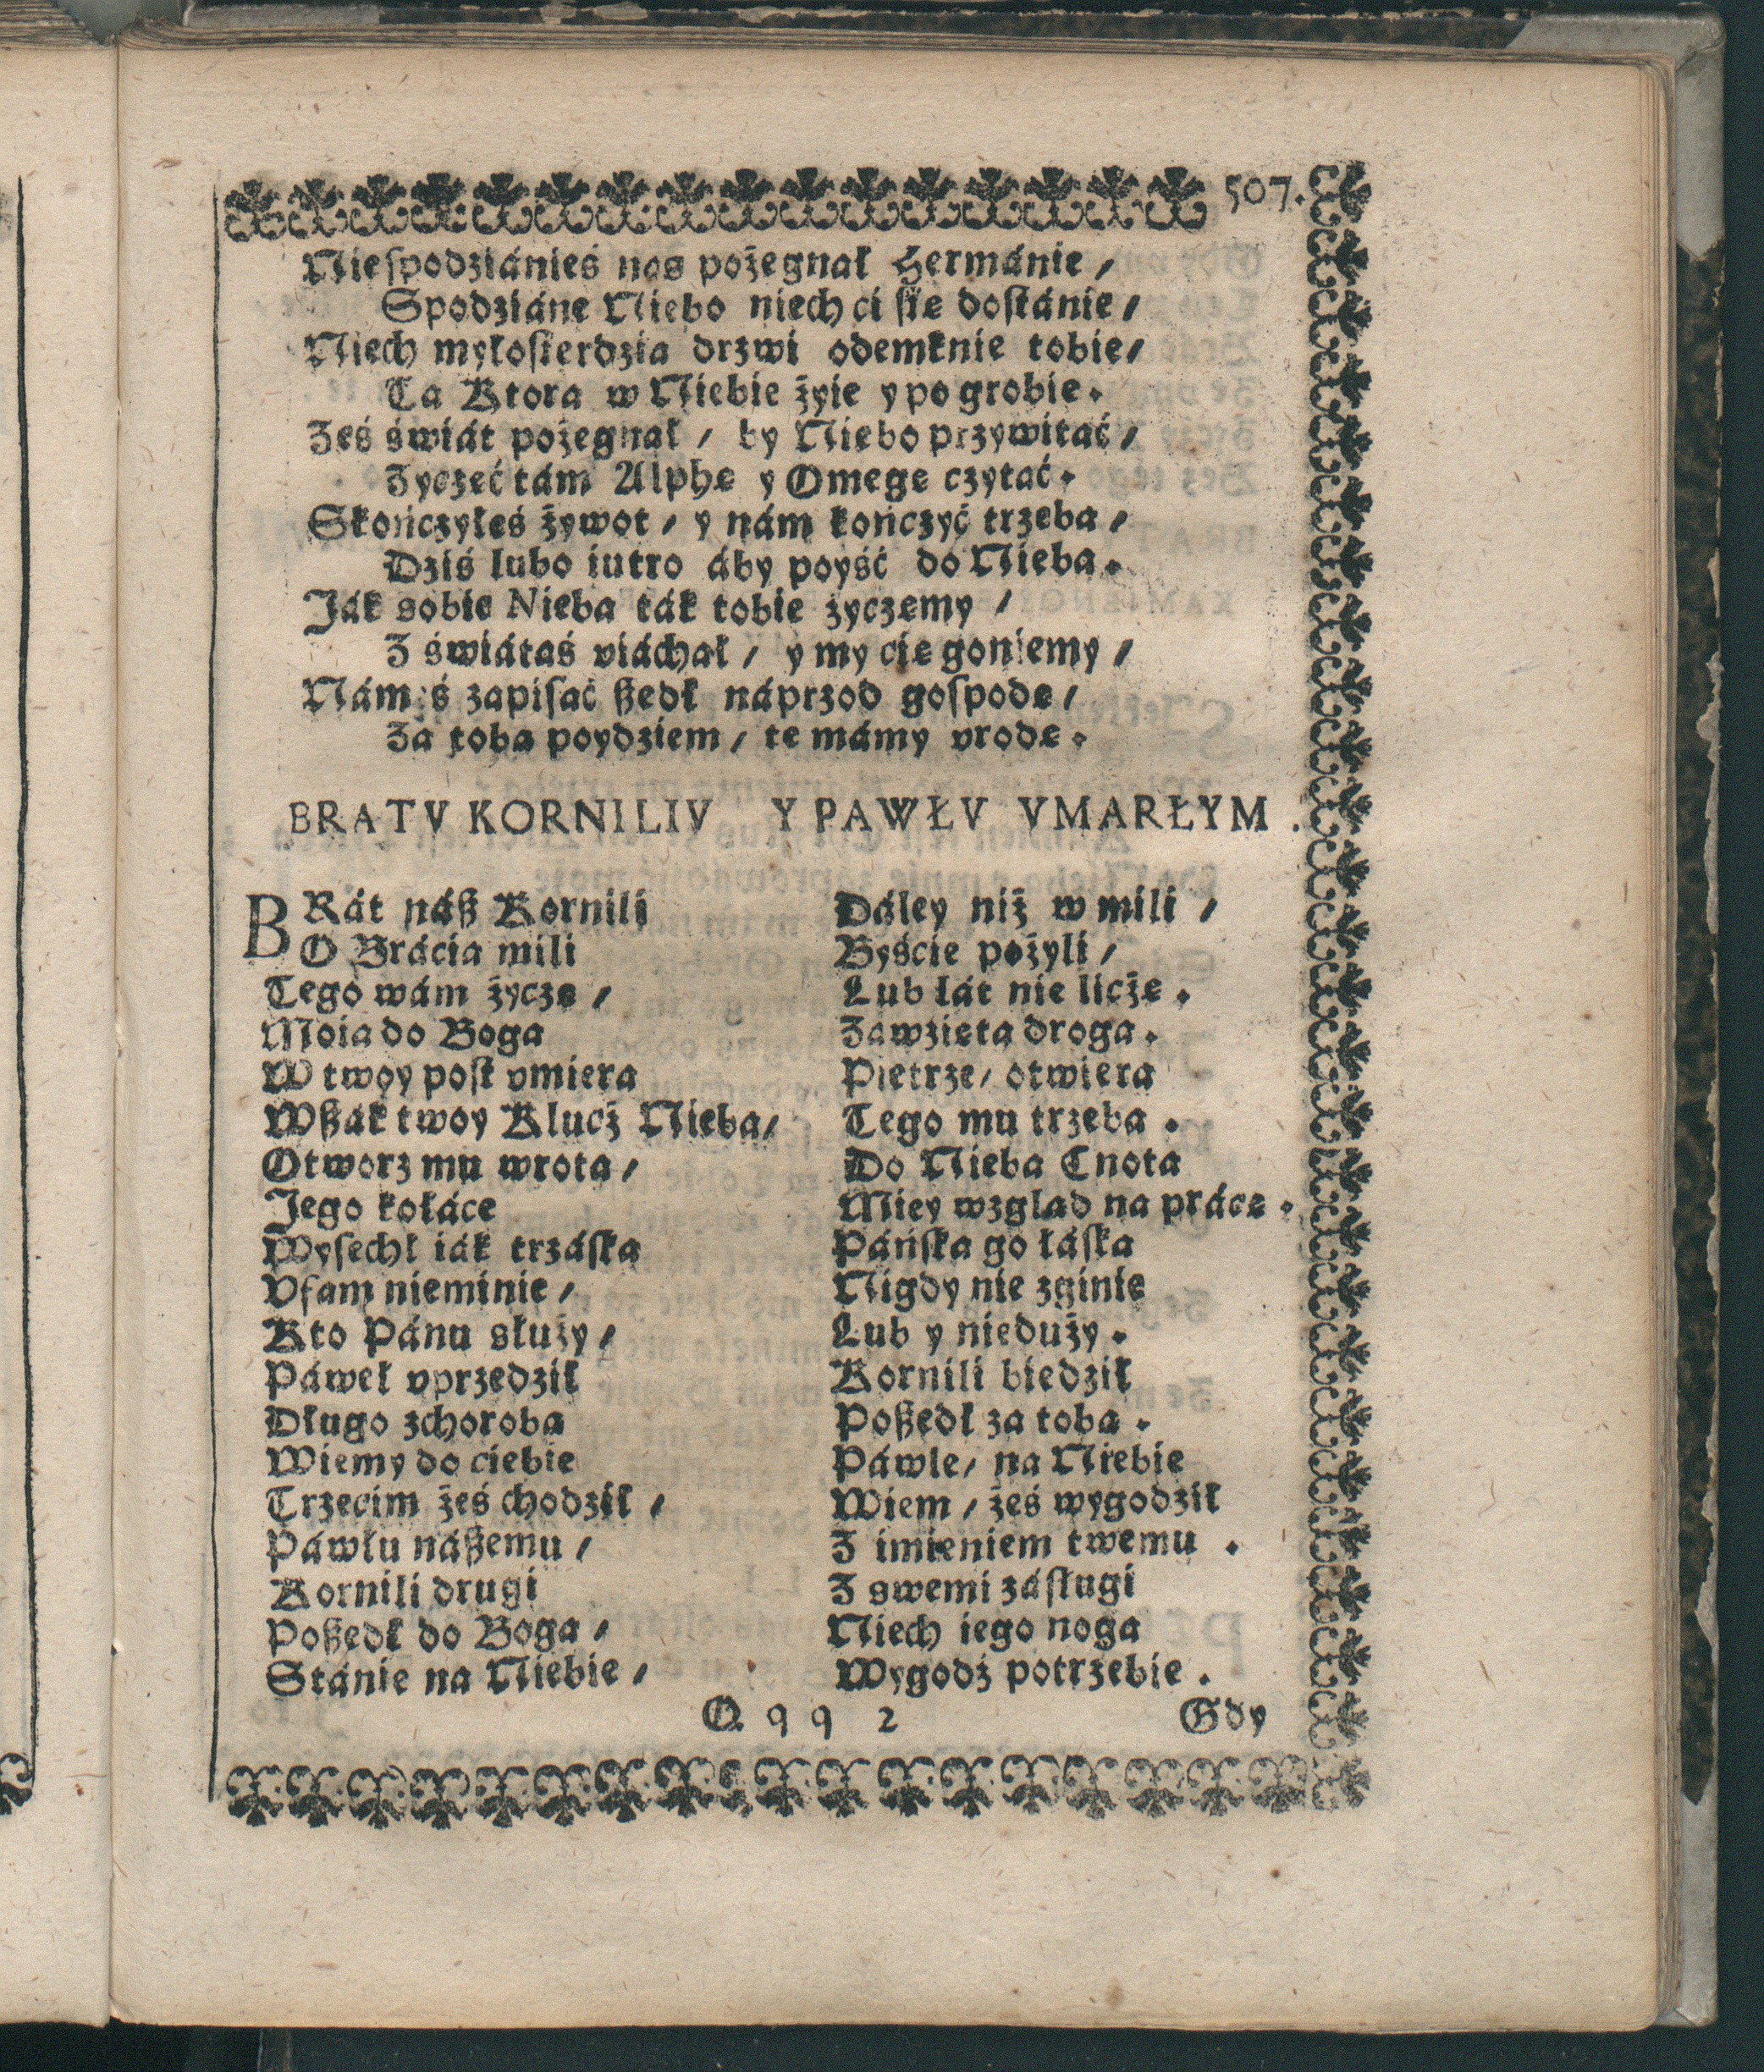 507.
Niespodziánieś nas pożegnał Hermánie /
Spodziáne Niebo niech ci sie dostánie /
Niech myłosierdzia drzwi odemknie tobie /
Ta Ktora w Niebie żyie y po grobie.
Ześ świát pożegnał / by Niebo przywitáć /
Zyczeć tám Alphe y Omege czytać.
Skończyłeś żywot / y nám kończyć trzeba /
Dziś lubo iutro áby poyść do Nieba.
Ják sobie Nieba ták tobie życzemy /
Z świátaś viáchał / y my cie goniemy /
Námeś zapisać ßedł náprzod gospode /
Za toba poydziem / te mámy vrode.
BRATV KORNILIV Y PAWŁV VMARŁYM.
BRát náß Kornili Dáley niż w mili /
O Brácia mili Byście pożyli /
Tego wám życze / Lub lát nie licże.
Moia do Boga Zawzieta droga.
W twoy post vmiera Pietrze / otwiera
Wßák twoy Klucż Nieba / Tego mu trzeba.
Otworz mu wrota / Do Nieba Cnota
Jego kołáce Miey wzglad na práce.
Wysechł iák trzáska Páńska go łáska
Vfam nieminie / Nigdy nie zginie
Kto Pánu służy / Lub y nieduży.
Páweł vprzedził Kornili biedził
Długo zchoroba Poßedł za toba.
Wiemy do ciebie Páwle / na Niebie
Trzecim żeś chodził / Wiem / żeś wygodził
Páwłu náßemu / Z imieniem twemu.
Kornili drugi Z swemi zásługi
Poßedł do Boga / Niech iego noga
Stánie na Niebie / Wygodź potrzebie.
Qqq 2 Gdy